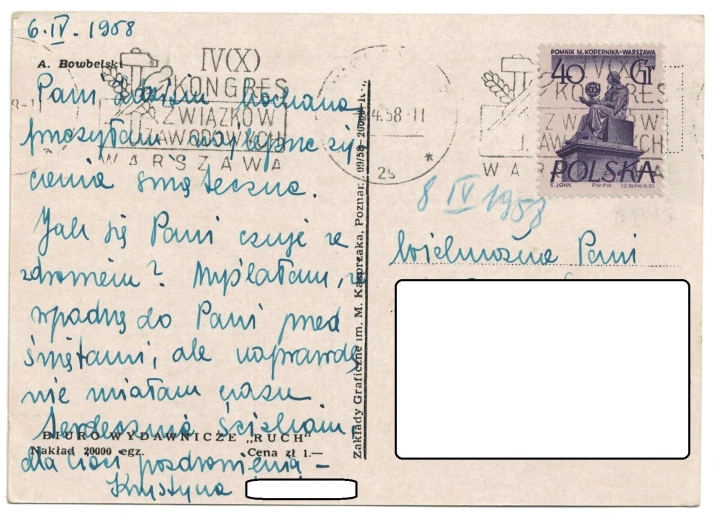 6.IV.1958
A. Bowbelski
IV(X)
KONGRES
ZWIĄZKÓW
ZAWODOWYCH
WARSZAWA
Pani kochana
przesyłam najlepsze ży
czenia świąteczne.
Jak się Pani czuje ze
zdrowiem? Myślałam, że
wpadnę do Pani przed
świętami, ale naprawdę
nie miałam czasu
Serdecznie ściskam,
dla cioci pozdrowienia –
Krystyna
BIURO WYDAWNICZE „RUCH”
Nakład 20000 egz. Cena zł 1.—
Zakłady Graficzne im. M. Kasprzaka, Poznań
4.58-11
2s *
POMNIK M. KOPERNIKA-WARSZAWA
40 Gr
POLSKA
E. JOHN PWPW CZ. SŁANIA SC.
8 IV 1958
Wielmożna Pani